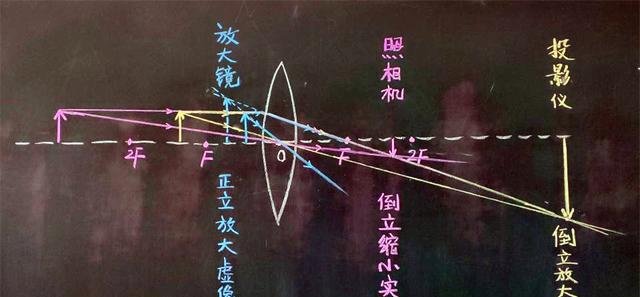 放大镜
照相机
投影仪
2F
F
O
F
2F
正立放大虚像
倒立缩小实
倒立放大